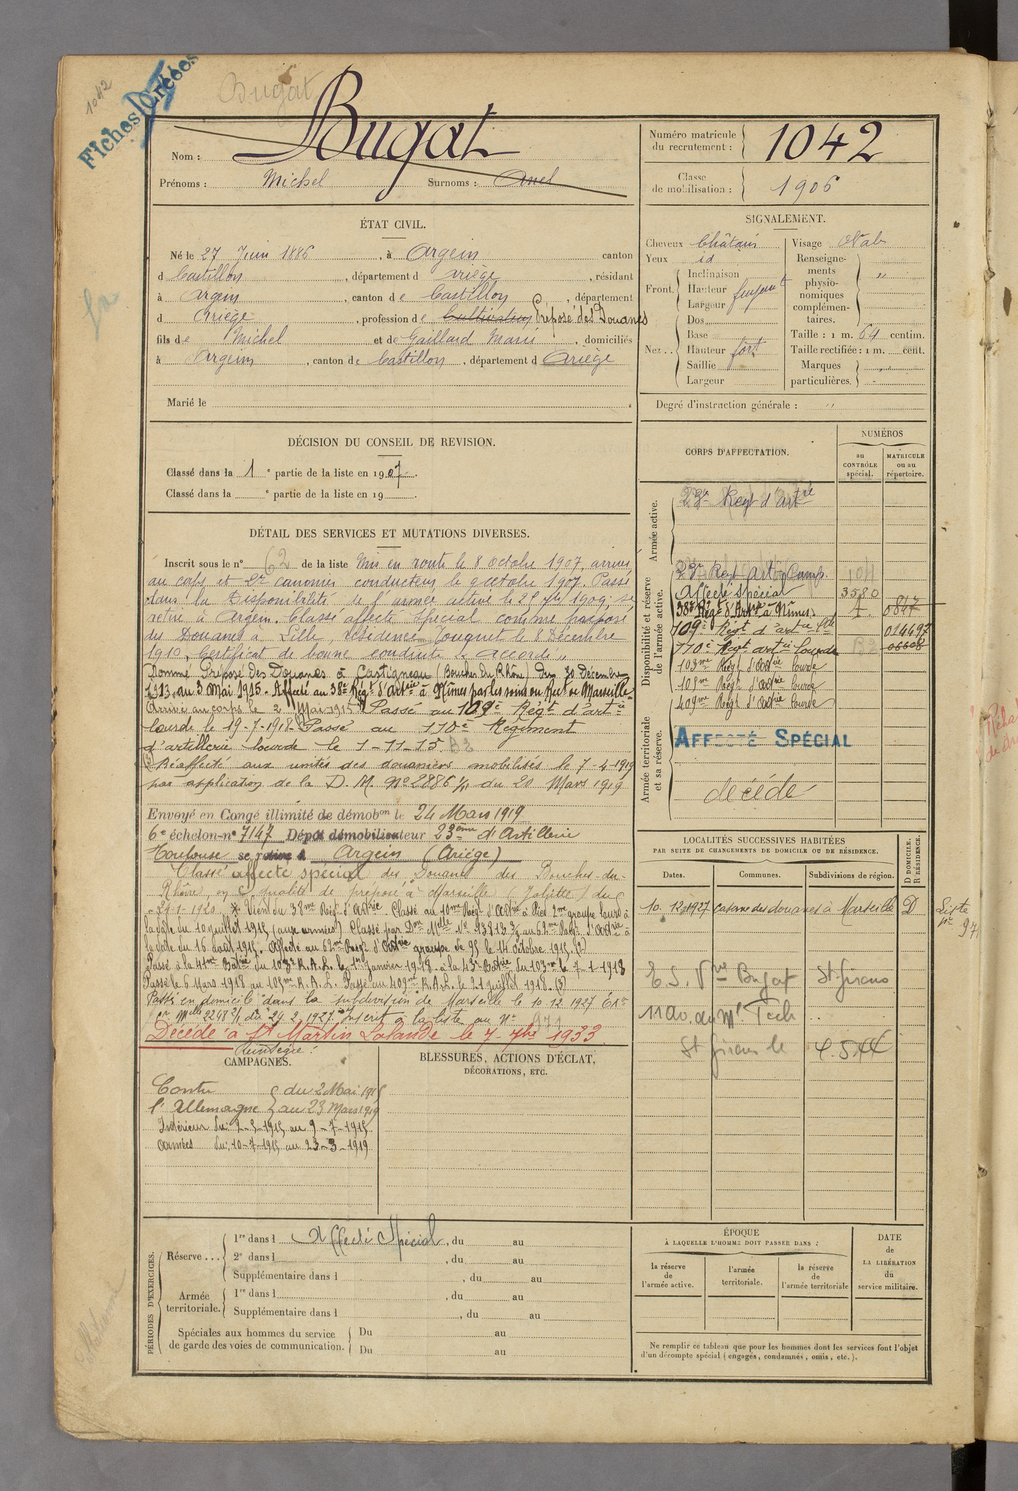 1042
Fiches Créées
Bugat
Nom : Bugat
Prénoms : Michel Surnoms : Anel
Numéro matricule du recrutement : 1042
Classe de mobilisation : 1906
ÉTAT CIVIL.
Né le 27 Juin 1886, à Argein canton
d Castillon, département d Ariège, résidant
à Argein, canton de Castillon, département
d Ariège, profession de Cultivateur Préposé des Douanes
fils de Michel et de Gaillard Marie domiciliés
à Argein, canton de Castillon, département d Ariège
Marié le
SIGNALEMENT.
Cheveux Châtain
Yeux id
Front. Inclinaison
Hauteur fuyant
Largeur
Nez . . Dos
Base
Hauteur fort
Saillie
Largeur
Visage Oval
Renseignements physionomiques complémentaires. "
Taille : 1 m. 64 centim.
Taille rectifiée : 1 m. cent.
Marques particulières.
Degré d'instruction générale : "
DÉCISION DU CONSEIL DE REVISION.
Classé dans la 1e partie de la liste en 1907.
Classé dans la e partie de la liste en 19
DÉTAIL DES SERVICES ET MUTATIONS DIVERSES.
Inscrit sous le n° 62 de la liste Mis en route le 8 octobre 1907, arrivé
au corps et 2e canonnier conducteur le 9 octobre 1907. Passé
dans la Disponibilité de l'armée active le 25 7bre 1909, se
retire à Argein. Classé affecté spécial comme préposé
des Douanes à Lille, résidence Touquet le 8 Décembre
1910, Certificat de bonne conduite "Accordé"
Nommé Préposé des Douanes à Castigneau (Bouches du Rhône) Du 30 Décembre
1913, au 3 Mai 1915 - Affecté au 38e Régt d'Artrie à Nîmes par les soins du Rect de Marseille
Arrivé au corps le 2 Mai 1915. Passé au 109e Régt d'artie
lourde le 19-7-1918 Passé au 110e Régiment
d'artillerie lourde le 1-11-15.
Réaffecté aux unités des douaniers mobilisés le 7-4-1919
par application de la D. M. N° 2886 1/1 du 20 Mars 1919
Envoyé en Congé illimité de démobon le 24 Mars 1919
6e échelon-n° 7147 Dépot démobilisateur 23ème d'Artillerie
Toulouse se retire à Argein (Ariège)
Classé affecté spécial des Douanes des Bouches-du-
Rhône en qualité de préposé à Marseille (Joliette) du
la date du 10 juillet 1915 (aux armées)
la date du 16 août 1915. Affecté au 62me Régt d'Artrie groupe de 95 le 14 octobre 1915
Passé à la 41me Batrie du 103e R.A.L. le 1er janvier 1918. à la 43e Batrie du 103me le 7-1-1918
Passé le 6 Mars 1918 au 105me R.A.L. Passé au 409me R.A.L. le 21 juillet 1918.
Passé en domicile dans la subdivision de Marseille le 10.12.1927
Inscrit à la liste au N° 971
Décédé à St Martin Lalande le 7-7bre 1933
CORPS D'AFFECTATION.
NUMÉROS
au CONTRÔLE spécial.
MATRICULE ou au répertoire.
Armée active.
23e Régt d'artrie
Disponibilité et réserve de l'armée active.
23e Régt artie Camp.
Affecté Spécial 3580
38e Régt d'Artrie à Nîmes.
109e Régt d'artrie lde 014697
110e Régt artie lourde
103me Régt d'Artrie lourde
105me Régt d'Artrie lourde
409me Régt d'Artrie lourde
Armée territoriale et sa réserve.
AFFECTÉ SPÉCIAL
décédé
LOCALITÉS SUCCESSIVES HABITÉES
PAR SUITE DE CHANGEMENTS DE DOMICILE OU DE RÉSIDENCE.
Dates. Communes. Subdivisions de région. D DOMICILE. R RÉSIDENCE.
10.12.1927 caserne des douanes à Marseille D
Liste
971
E.S. Vve Bugat St Girons
St Girons le
CAMPAGNES.
Contre l'Allemagne du 2 Mai 1915
au 23 Mars 1919
Intérieur du 2-5-1915 au 9-7-1915
Armées du 10-7-1915 au 23-3-1919
BLESSURES, ACTIONS D'ÉCLAT,
DÉCORATIONS, ETC.
PÉRIODES D'EXERCICES.
Réserve . . . 1re dans l Affecté Spécial, du au
2e dans l , du au
Supplémentaire dans l , du au
Armée territoriale. 1re dans l , du au
Supplémentaire dans l , du au
Spéciales aux hommes du service de garde des voies de communication. Du au
Du au
ÉPOQUE
À LAQUELLE L'HOMME DOIT PASSER DANS :
la réserve de l'armée active.
l'armée territoriale.
la réserve de l'armée territoriale
DATE de LA LIBÉRATION du service militaire.
Ne remplir ce tableau que pour les hommes dont les services font l'objet
d'un décompte spécial (engagés, condamnés, omis, etc.).